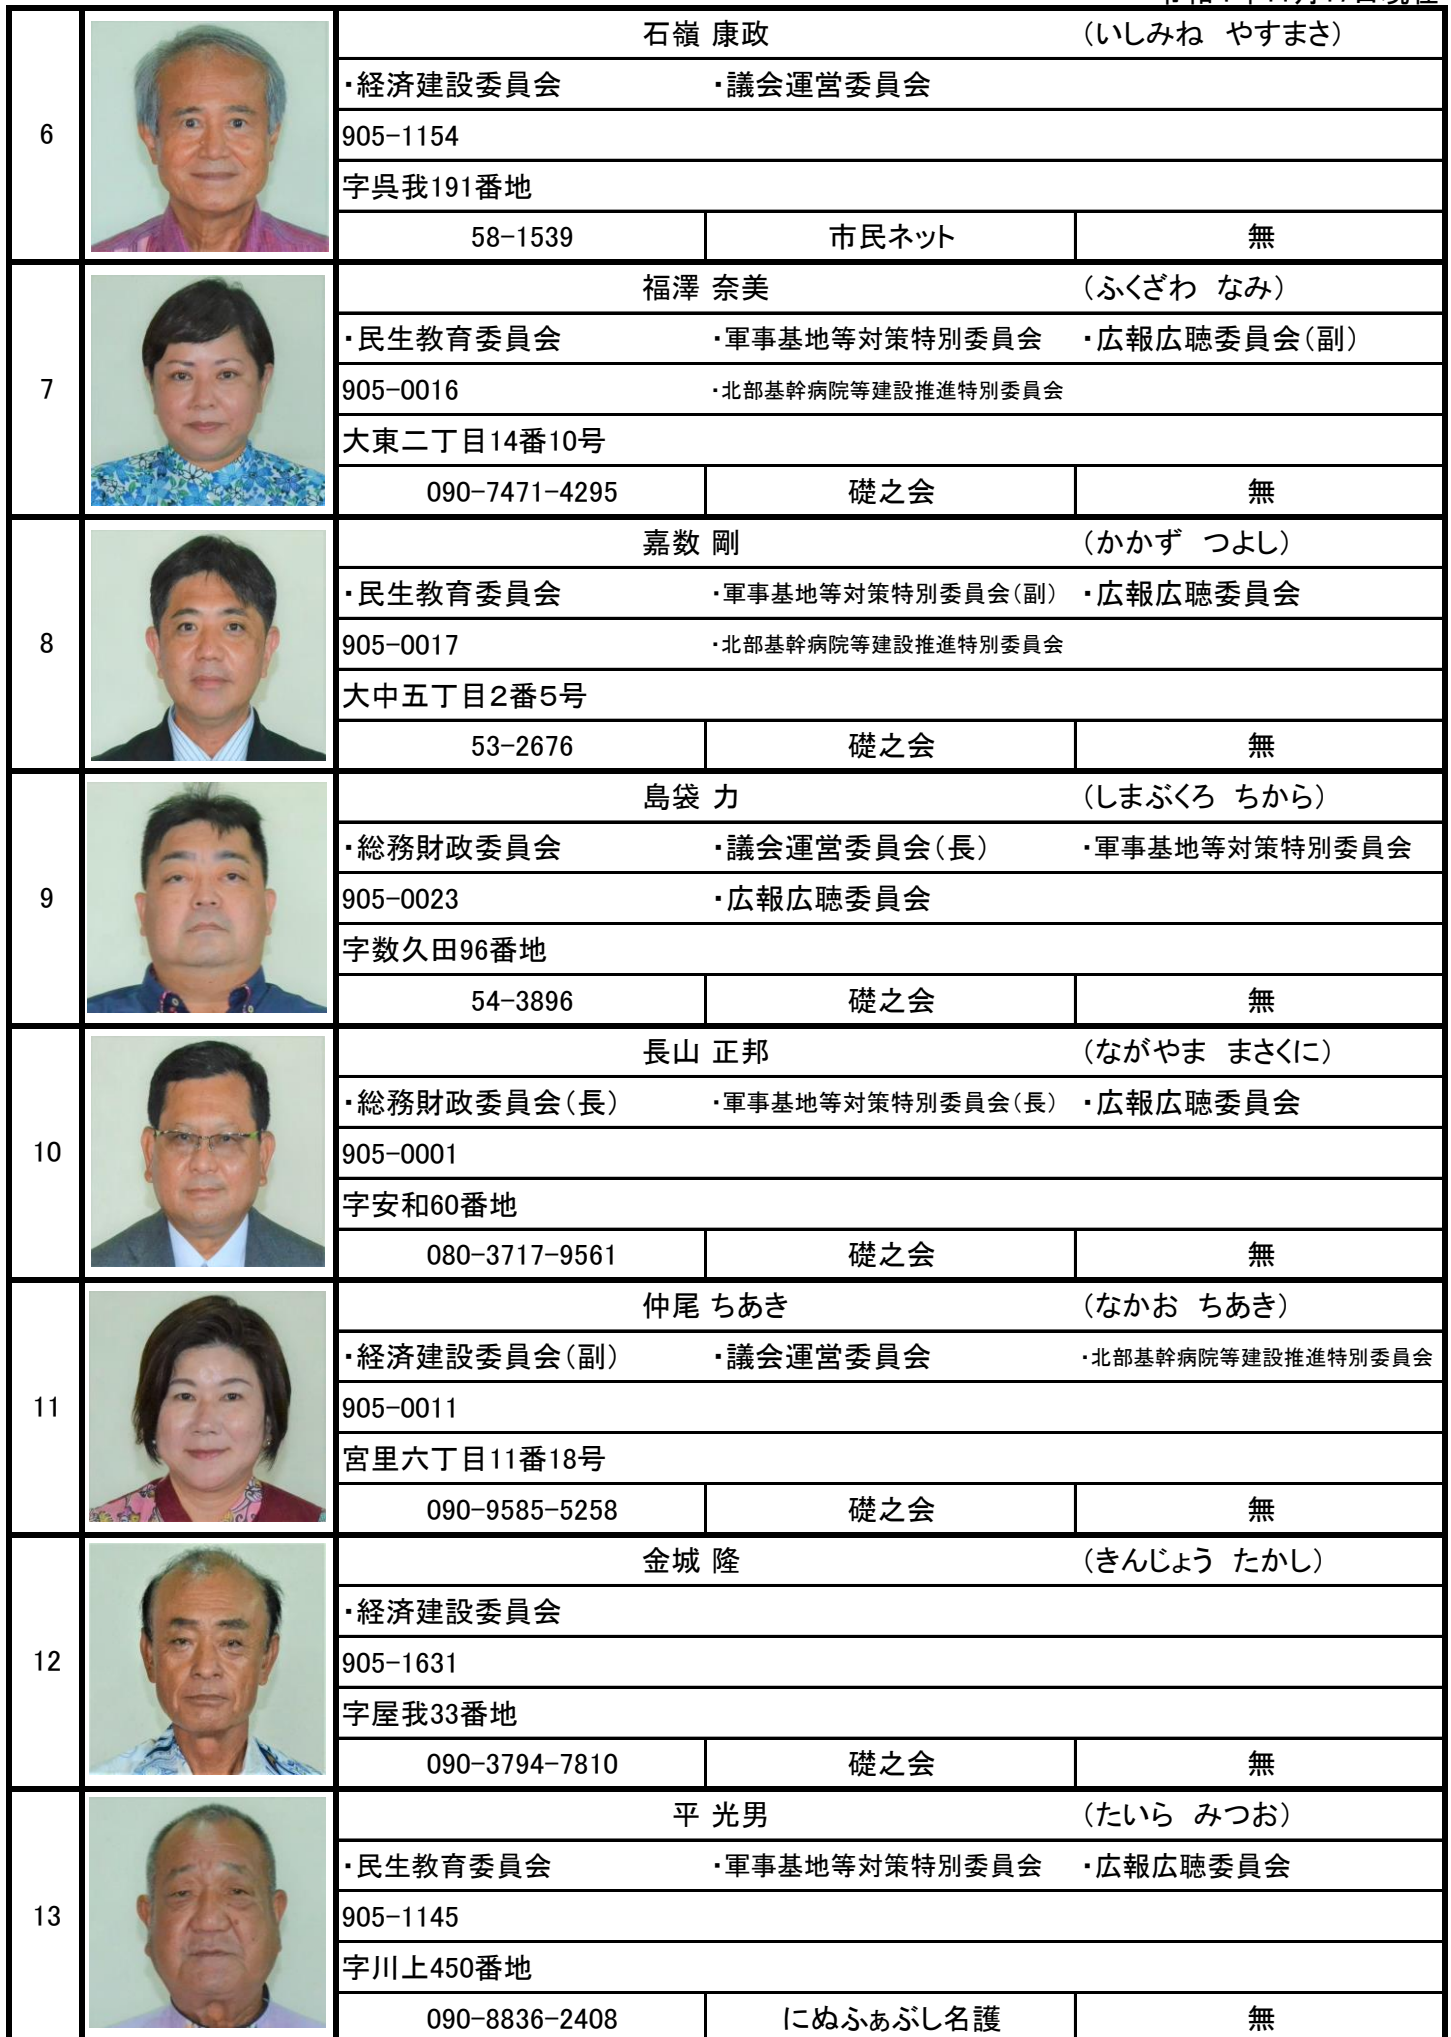 6
石嶺 康政 （いしみね　やすまさ）
・経済建設委員会 ・議会運営委員会
905-1154
字呉我191番地
58-1539 市民ネット 無
7
福澤 奈美 （ふくざわ　なみ）
・民生教育委員会 ・軍事基地等対策特別委員会 ・広報広聴委員会（副）
905-0016 ・北部基幹病院等建設推進特別委員会
大東二丁目14番10号
090-7471-4295 礎之会 無
8
嘉数 剛 （かかず　つよし）
・民生教育委員会 ・軍事基地等対策特別委員会（副） ・広報広聴委員会
905-0017 ・北部基幹病院等建設推進特別委員会
大中五丁目２番５号
53-2676 礎之会 無
9
島袋 力 （しまぶくろ　ちから）
・総務財政委員会 ・議会運営委員会（長） ・軍事基地等対策特別委員会
905-0023 ・広報広聴委員会
字数久田96番地
54-3896 礎之会 無
10
長山 正邦 （ながやま　まさくに）
・総務財政委員会（長） ・軍事基地等対策特別委員会（長） ・広報広聴委員会
905-0001
字安和60番地
080-3717-9561 礎之会 無
11
仲尾 ちあき （なかお　ちあき）
・経済建設委員会（副） ・議会運営委員会 ・北部基幹病院等建設推進特別委員会
905-0011
宮里六丁目11番18号
090-9585-5258 礎之会 無
12
金城 隆 （きんじょう　たかし）
・経済建設委員会
905-1631
字屋我33番地
090-3794-7810 礎之会 無
13
平 光男 （たいら　みつお）
・民生教育委員会 ・軍事基地等対策特別委員会 ・広報広聴委員会
905-1145
字川上450番地
090-8836-2408 にぬふぁぶし名護 無